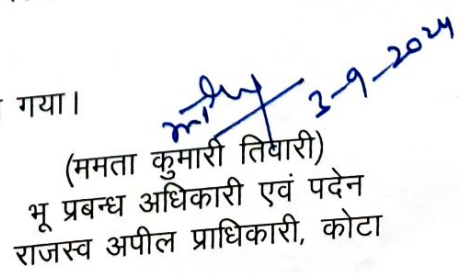 गया।
3-9-2024
(ममता कुमारी तिवारी)
भू प्रबन्ध अधिकारी एवं पदेन
राजस्व अपील प्राधिकारी, कोटा